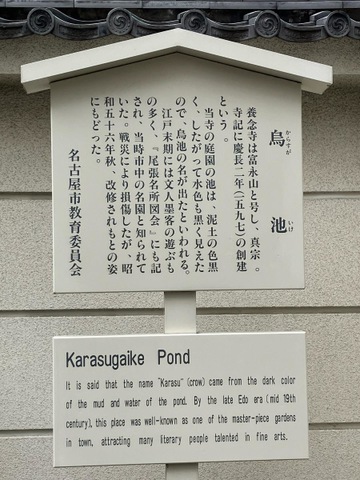 烏池
からすが いけ
養念寺は富永山と号し、真宗。
寺記に慶長二年(一五九七)の創建
という。
当寺の庭園の池は、泥土の色黒
く、したがって水色も黒く見えた
ので、烏池の名が出たといわれる。
江戸末期には文人墨客の遊ぶも
の多く、『尾張名所図会』にも記
され、当時市中の名園と知られて
いた。戦災により損傷したが、昭
和五十六年秋、改修されもとの姿
にもどった。
名古屋市教育委員会
Karasugaike Pond
It is said that the name "Karasu" (crow) came from the dark color
of the mud and water of the pond. By the late Edo era (mid 19th
century), this place was well-known as one of the master-piece gardens
in town, attracting many literary people talented in fine arts.